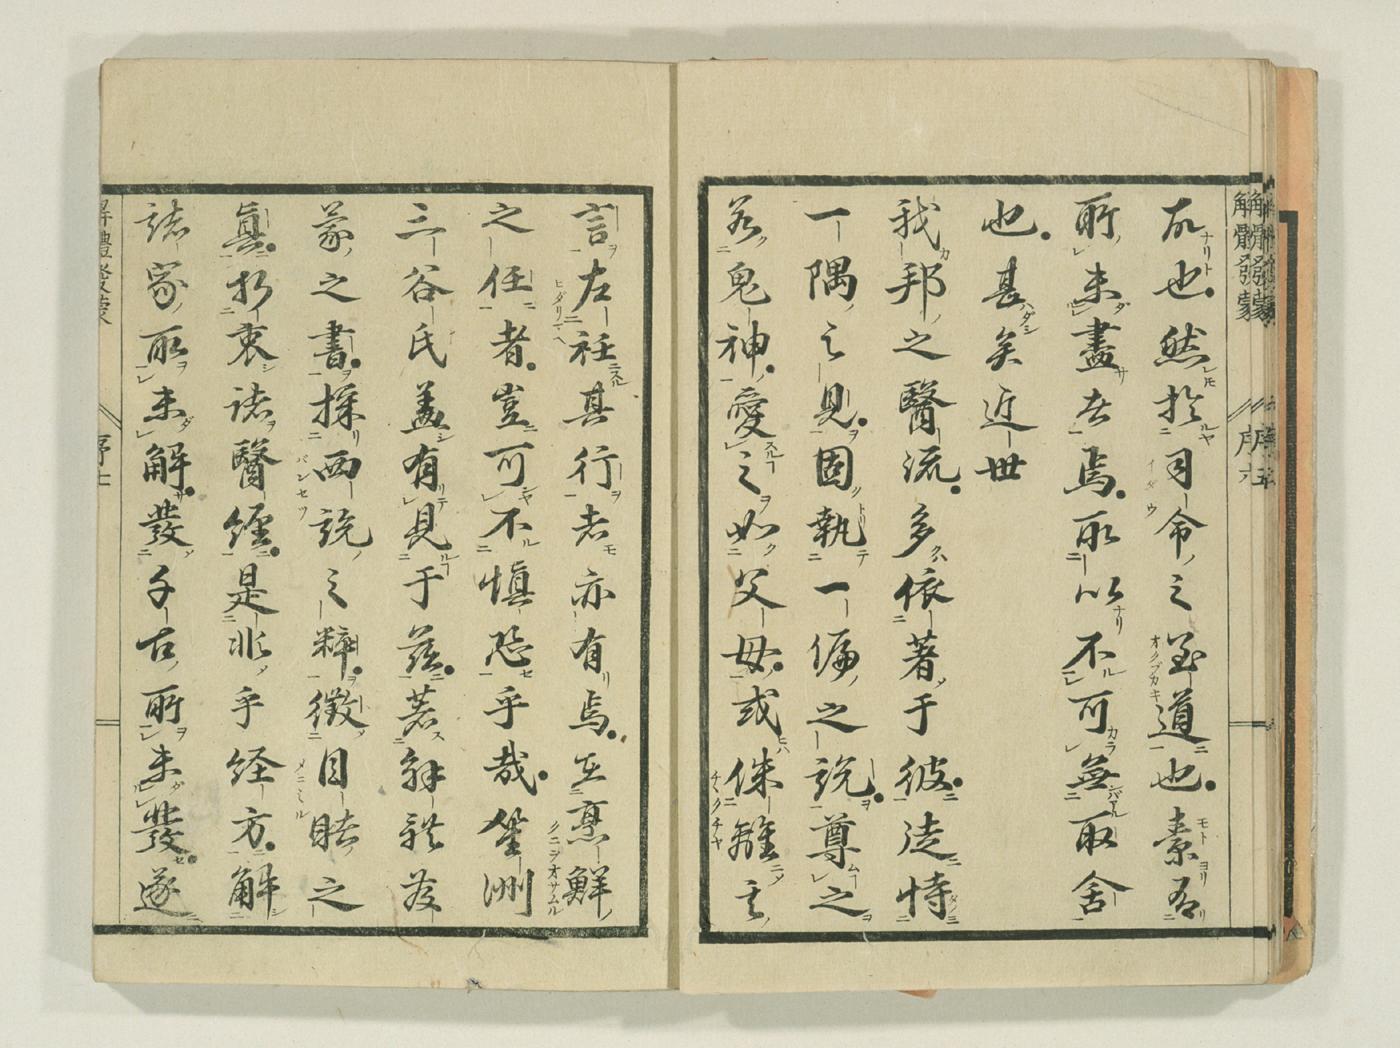 解體發蒙　序六
故也。然於司命之至道也。素有
所未盡者焉。所以不可無取舍
也。甚矣近世
我邦之醫流。多依著于彼。徒恃
一隅之見。固執一偏之説。尊之
若鬼神。愛之如父母。或侏離其
言左衽其行者亦有焉。至烹鮮
之任者。豈可不慎恐乎哉。笙洲
三谷氏蓋有見于茲。著解體發
蒙之書。採西説之粹。徴目睹之
真。折衷諸醫經。是非乎経方。解
諸家所未解。發千古所未發。遂
解體發蒙　序七